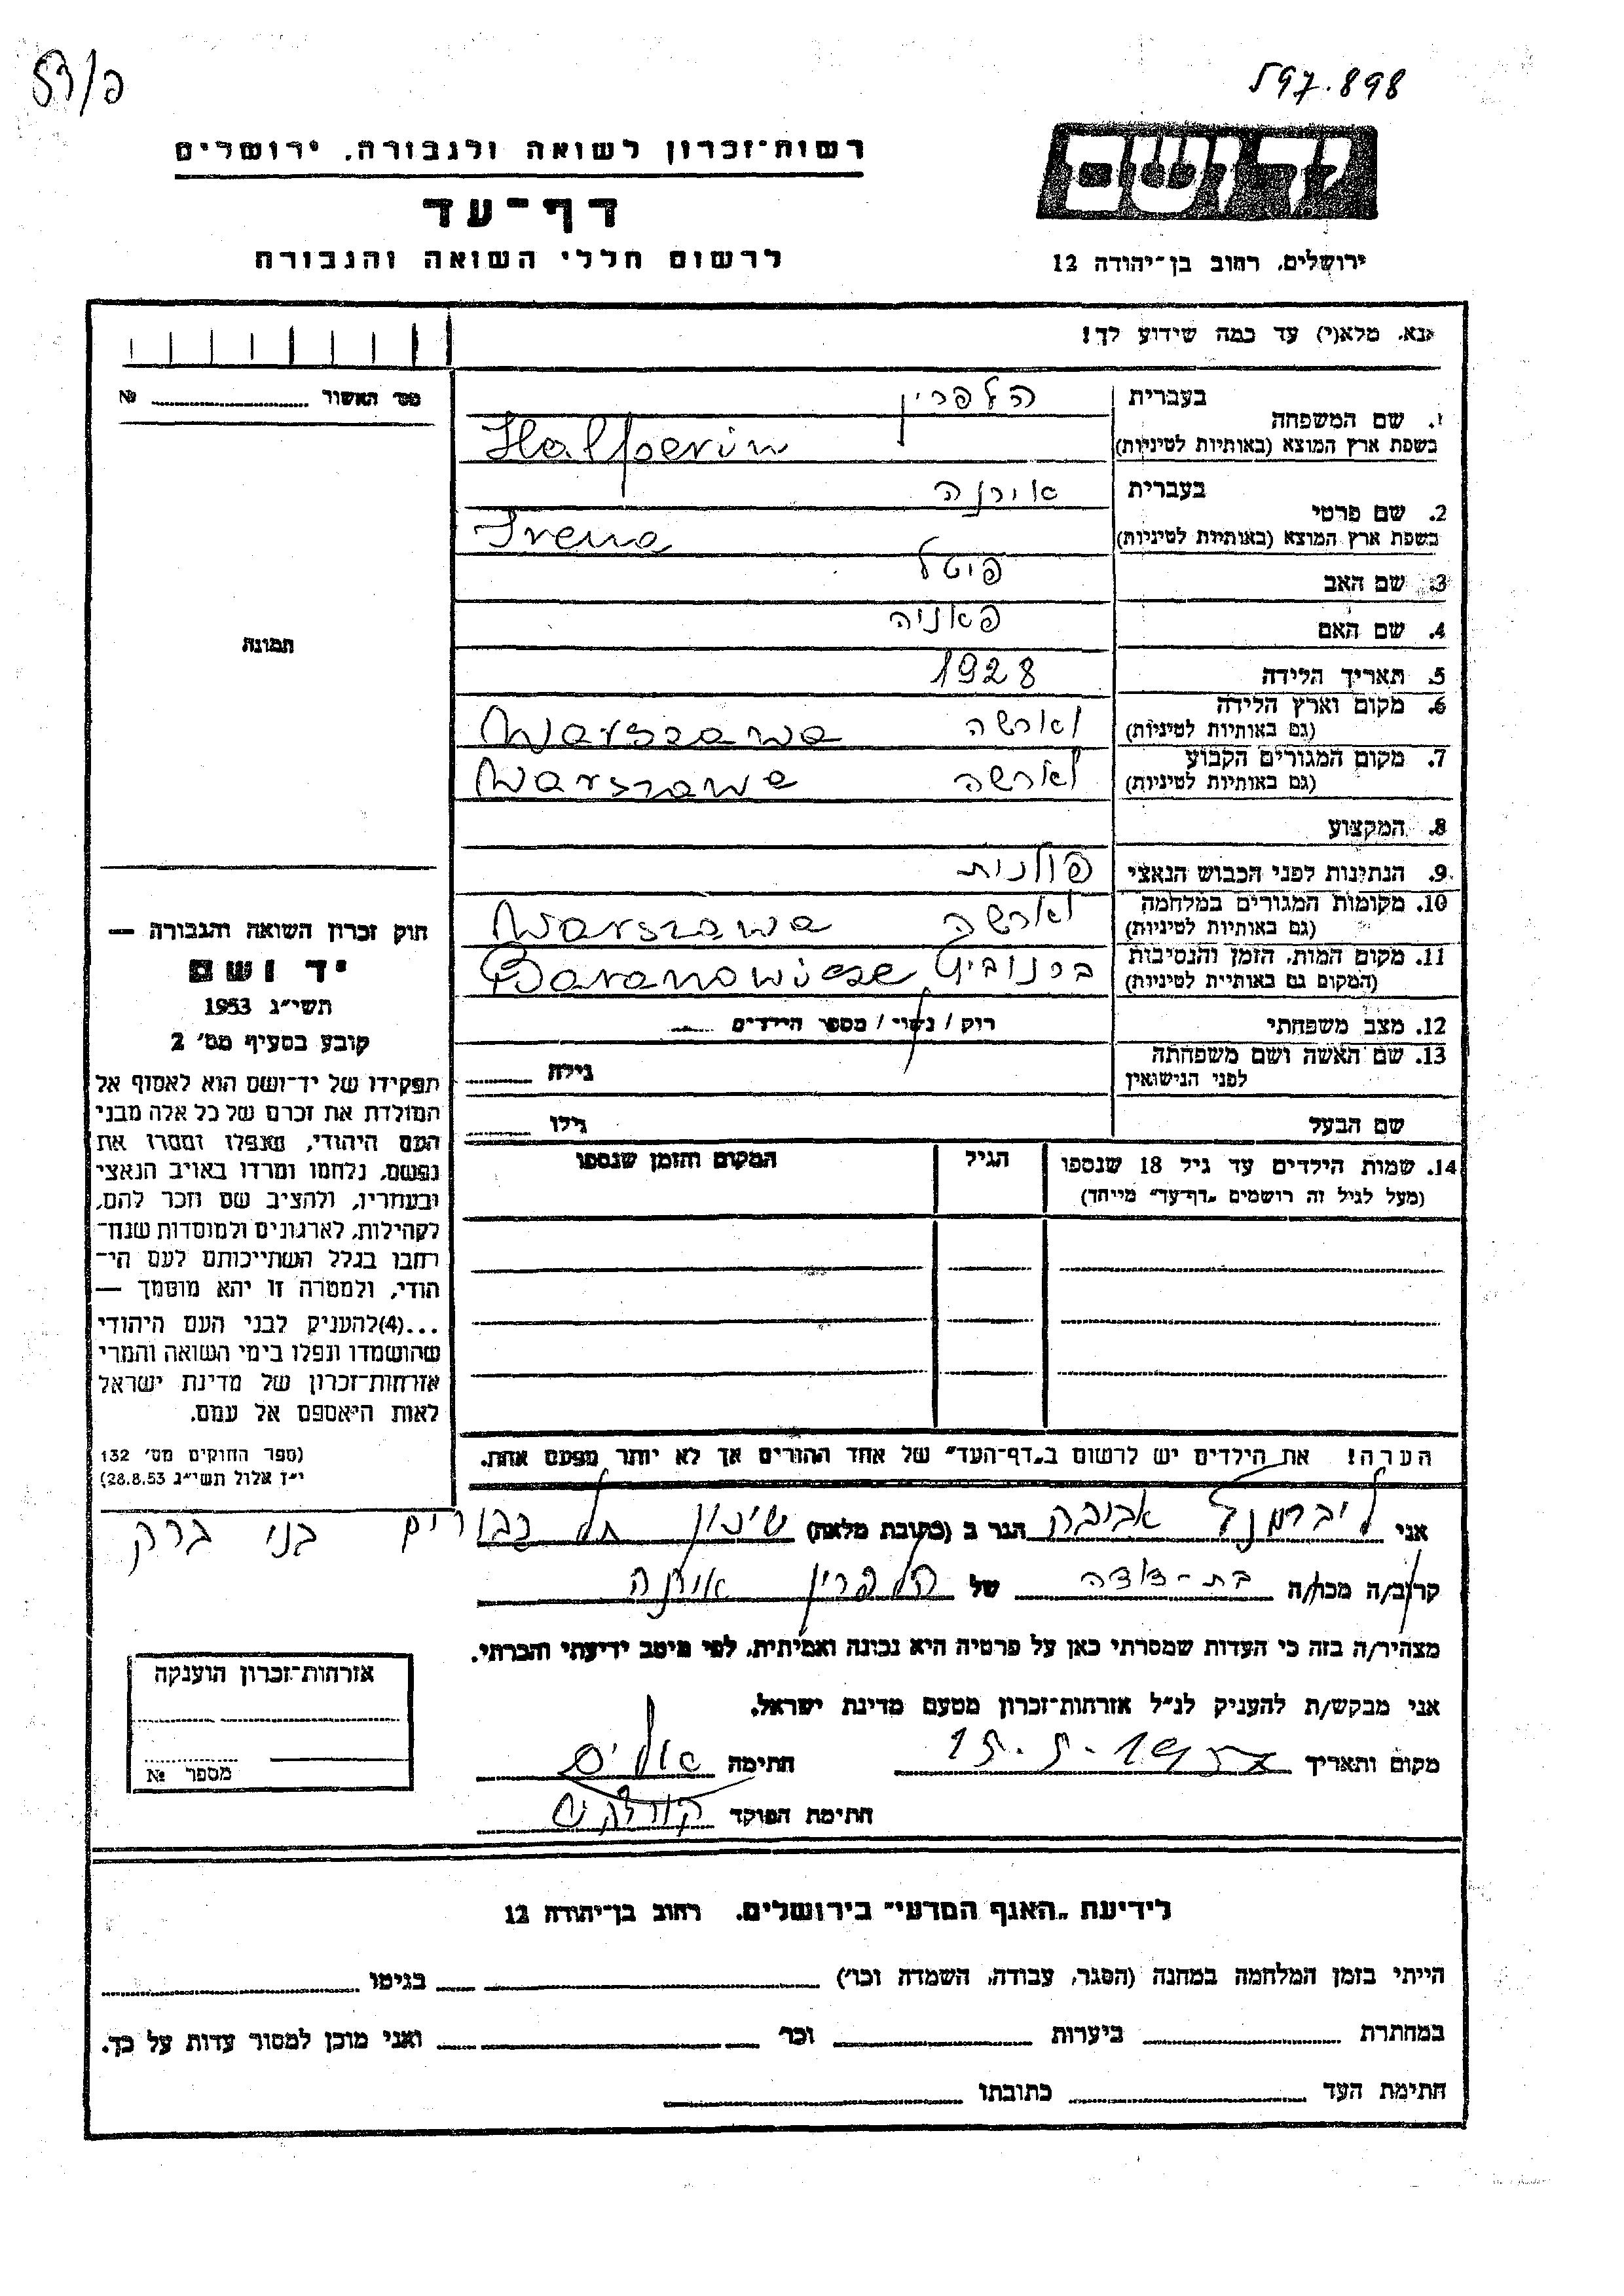 53/פ
597.898
יד ושם
ירושלים, רחוב בן־יהודה 12
רשות־זכרון לשואה ולגבורה, ירושלים
דף־עד
לרשום חללי השואה והגבורה
אנא, מלא(י) עד כמה שידוע לך!
מס׳ האשור № 
תמונה
1. שם המשפחה
בעברית הלפרין
בשפת ארץ המוצא (באותיות לטיניות) Halperin
2. שם פרטי
בעברית אירנה
בשפת ארץ המוצא (באותיות לטיניות) Irena
3. שם האב
4. שם האם פאניה
5. תאריך הלידה 1928
6. מקום וארץ הלידה
(גם באותיות לטיניות) וארשה Warszawa
7. מקום המגורים הקבוע
(גם באותיות לטיניות) וארשה Warszawa
8. המקצוע
9. הנתינות לפני הכבוש הנאצי פולנית
10. מקומות המגורים במלחמה
(גם באותיות לטיניות) וארשה Warszawa
11. מקום המות, הזמן והנסיבות
(המקום גם באותיות לטיניות) Baranowicze
12. מצב משפחתי רוק / נשוי / מספר הילדים
13. שם האשה ושם משפחתה
לפני הנישואין גילה
שם הבעל גילו
14. שמות הילדים עד גיל 18 שנספו
(מעל לגיל זה רושמים „דף־עד״ מייחד)
הגיל
המקום והזמן שנספו
הערה! את הילדים יש לרשום ב„דף־העד״ של אחד ההורים אך לא יותר מפעם אחת.
חוק זכרון השואה והגבורה —
יד ושם
תשי״ג 1953
קובע בסעיף מס׳ 2
תפקידו של יד־ושם הוא לאסוף אל
המולדת את זכרם של כל אלה מבני
העם היהודי, שנפלו ומסרו את
נפשם, נלחמו ומרדו באויב הנאצי
ובעוזריו, ולהציב שם וזכר להם,
לקהילות, לארגונים ולמוסדות שנח־
רחבו בגלל השתייכותם לעם הי־
הודי, ולמטרה זו יהא מוסמך —
...(4)להעניק לבני העם היהודי
שהושמדו ונפלו בימי השואה והמרי
אזרחות־זכרון של מדינת ישראל
לאות היאספם אל עמם.
(ספר החוקים מס׳ 132
י״ז אלול תשי״ג 28.8.53)
אני אביבה הגר ב (כתובת מלאה) שיכון תל גבורים בני ברק
קרוב/ה מכר/ה בת-דודה של הלפרין אירנה
מצהיר/ה בזה כי העדות שמסרתי כאן על פרטיה היא נכונה ואמיתית, לפי מיטב ידיעתי והכרתי.
אני מבקש/ת להעניק לנ״ל אזרחות־זכרון מטעם מדינת ישראל.
מקום ותאריך 15.5.195 חתימה
חתימת הפוקד
אזרחות־זכרון הוענקה
מספר №
לידיעת „האגף המדעי״ בירושלים, רחוב בן־יהודה 12
הייתי בזמן המלחמה במחנה (הסגר, עבודה, השמדה וכו׳) בגיטו
במחתרת ביערות וכו׳ ואני מוכן למסור עדות על כך.
חתימת העד כתובתו